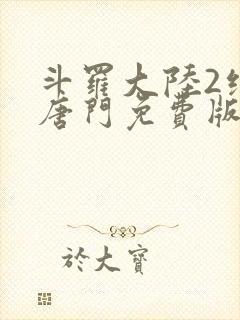 斗羅大陸2
唐門免費版
於大寶